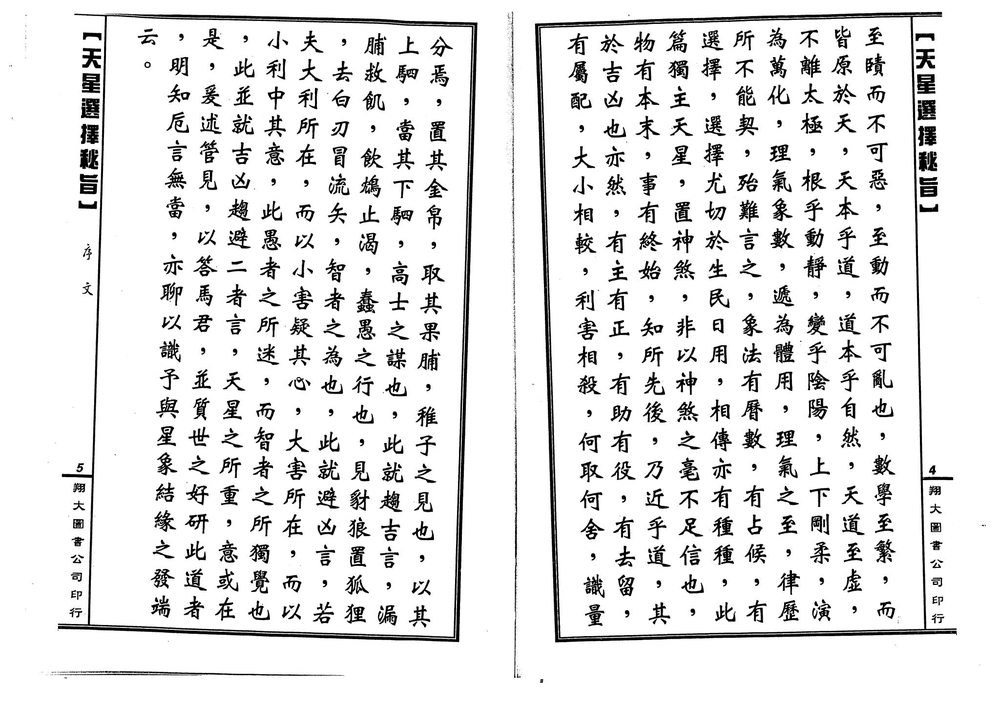 【天星選擇秘旨】
至賾而不可惡，至動而不可亂也，數學至繁，而
皆原於天，天本乎道，道本乎自然，天道至虛，
不離太極，根乎動靜，變乎陰陽，上下剛柔，演
為萬化，理氣象數，遞為體用，理氣之至，律歷
所不能契，殆難言之，象法有曆數，有占候，有
選擇，選擇尤切於生民日用，相傳亦有種種，此
篇獨主天星，置神煞，非以神煞之毫不足信也，
物有本末，事有終始，知所先後，乃近乎道，其
於吉凶也亦然，有主有正，有助有役，有去留，
有屬配，大小相較，利害相殺，何取何舍，識量
4
翔大圖書公司印行
【天星選擇秘旨】
序文
分焉，置其金帛，取其果脯，稚子之見也，以其
上駟，當其下駟，高士之謀也，此就趨吉言，漏
脯救飢，飲鴆止渴，蠢愚之行也，見豺狼置狐狸
，去白刃冒流矢，智者之為也，此就避凶言，若
夫大利所在，而以小害疑其心，大害所在，而以
小利中其意，此愚者之所迷，而智者之所獨覺也
，此並就吉凶趨避二者言，天星之所重，意或在
是，爰述管見，以答馬君，並質世之好研此道者
，明知卮言無當，亦聊以識予與星象結緣之發端
云。
5
翔大圖書公司印行